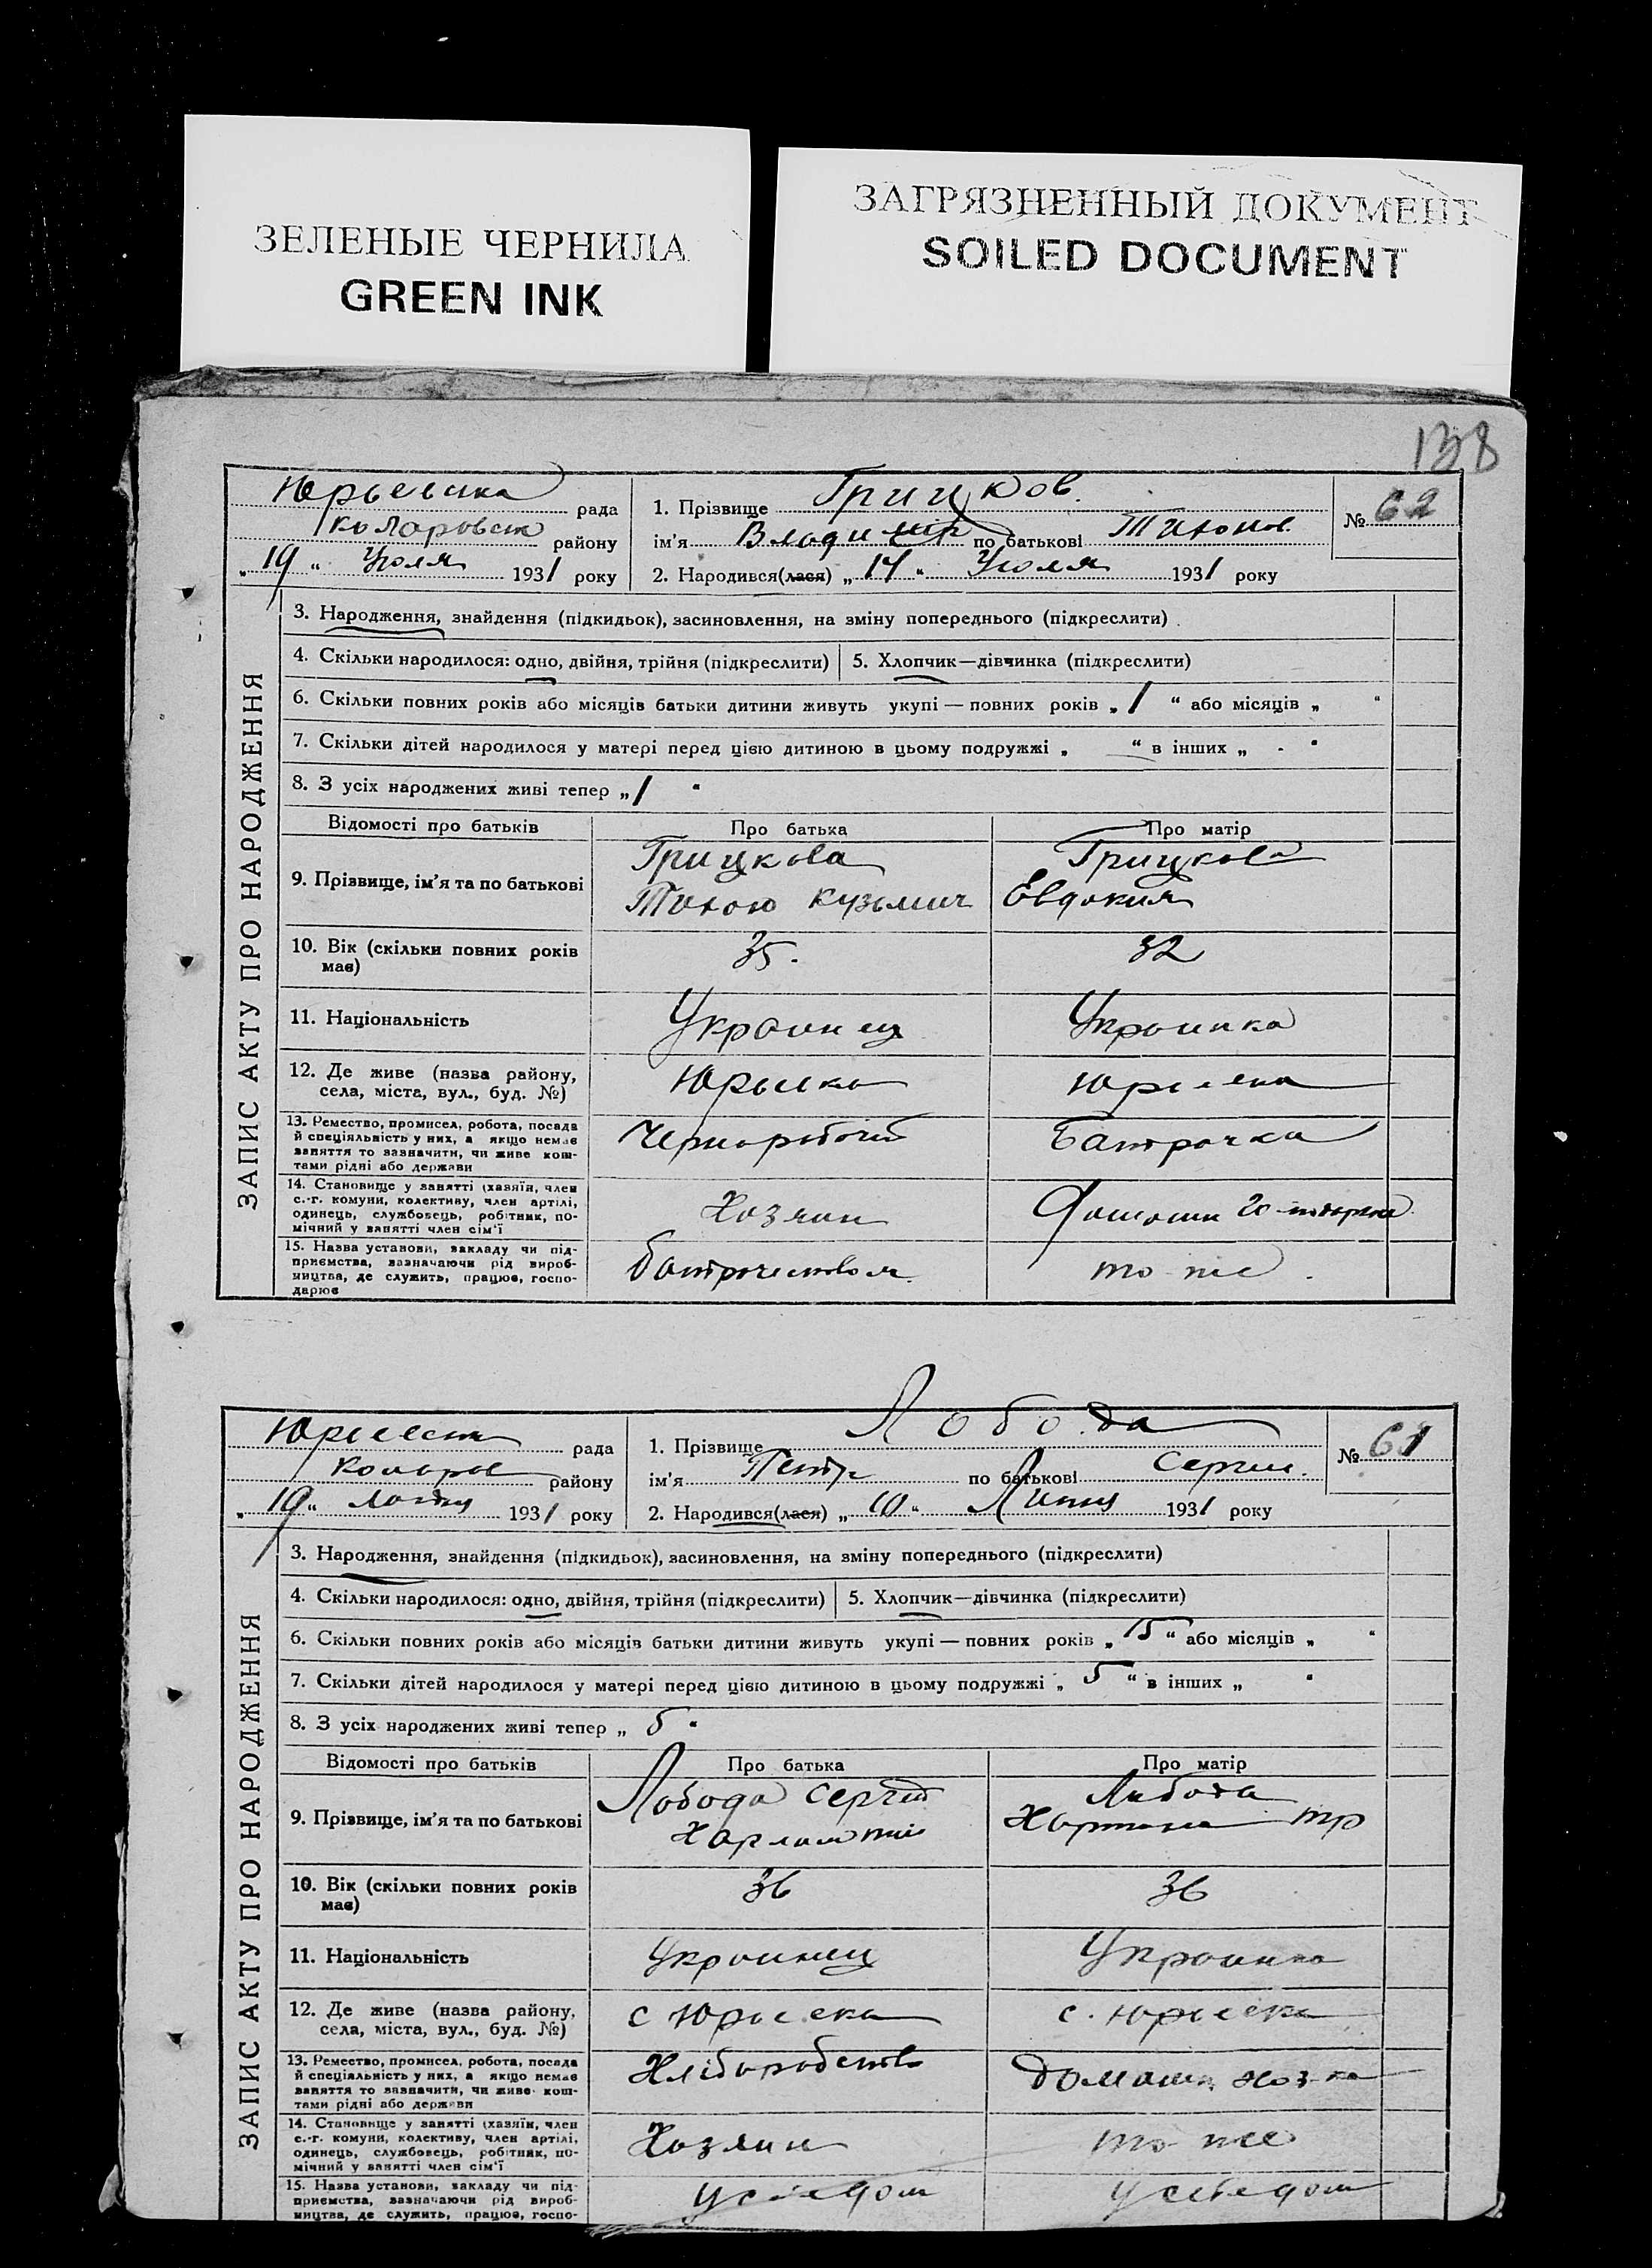 ЗЕЛЕНЫЕ ЧЕРНИЛА
GREEN INK
ЗАГРЯЗНЕННЫЙ ДОКУМЕНТ
SOILED DOCUMENT
138
рада
Коларовск району
„ 19 “ 1931 року
1. Прізвище Грицков.
ім'я Владимир по батькові Тихонов
2. Народився(лася) „ 14 “ 1931 року
№ 62
ЗАПИС АКТУ ПРО НАРОДЖЕННЯ
3. Народження, знайдення (підкидьок), засиновлення, на зміну попереднього (підкреслити)
4. Скільки народилося: одно, двійня, трійня (підкреслити)
5. Хлопчик—дівчинка (підкреслити)
6. Скільки повних років або місяців батьки дитини живуть укупі — повних років „ 1 “ або місяців „ “
7. Скільки дітей народилося у матері перед цією дитиною в цьому подружжі „ “ в інших „ - “
8. З усіх народжених живі тепер „ 1 “
Відомості про батьків
Про батька
Про матір
9. Прізвище, ім'я та по батькові
Грицкова
Кузьмич
Грицкова
Евдокия
10. Вік (скільки повних років
має)
35.
32
11. Національність
Украинец
Украинка
12. Де живе (назва району,
села, міста, вул., буд. №)
13. Ремество, промисел, робота, посада
й спеціяльність у них, а якщо немає
заняття то зазначити, чи живе кош-
тами рідні або держави
Чернорабочий
Батрачка
14. Становище у занятті (хазяїн, член
с.-г. комуни, колективу, член артілі,
одинець, службовець, робітник, по-
мічний у занятті член сім'ї
Хозяин
15. Назва установи, закладу чи під-
приємства, зазначаючи рід вироб-
ництва, де служить, працює, госпо-
дарює
то же
рада
району
„ 19 “ 1931 року
1. Прізвище Лобода
ім'я Петр по батькові Сергии.
2. Народився(лася) „ 10 “ Липня 1931 року
№ 61
ЗАПИС АКТУ ПРО НАРОДЖЕННЯ
3. Народження, знайдення (підкидьок), засиновлення, на зміну попереднього (підкреслити)
4. Скільки народилося: одно, двійня, трійня (підкреслити)
5. Хлопчик—дівчинка (підкреслити)
6. Скільки повних років або місяців батьки дитини живуть укупі — повних років „ 15 “ або місяців „ “
7. Скільки дітей народилося у матері перед цією дитиною в цьому подружжі „ 5 “ в інших „ “
8. З усіх народжених живі тепер „ “
Відомості про батьків
Про батька
Про матір
9. Прізвище, ім'я та по батькові
Лобода Сергий
Лобода
10. Вік (скільки повних років
має)
36
36
11. Національність
Украинец
Украинка
12. Де живе (назва району,
села, міста, вул., буд. №)
13. Ремество, промисел, робота, посада
й спеціяльність у них, а якщо немає
заняття то зазначити, чи живе кош-
тами рідні або держави
Хліборобство
14. Становище у занятті (хазяїн, член
с.-г. комуни, колективу, член артілі,
одинець, службовець, робітник, по-
мічний у занятті член сім'ї
Хозяин
то же
15. Назва установи, закладу чи під-
приємства, зазначаючи рід вироб-
ництва, де служить, працює, госпо-